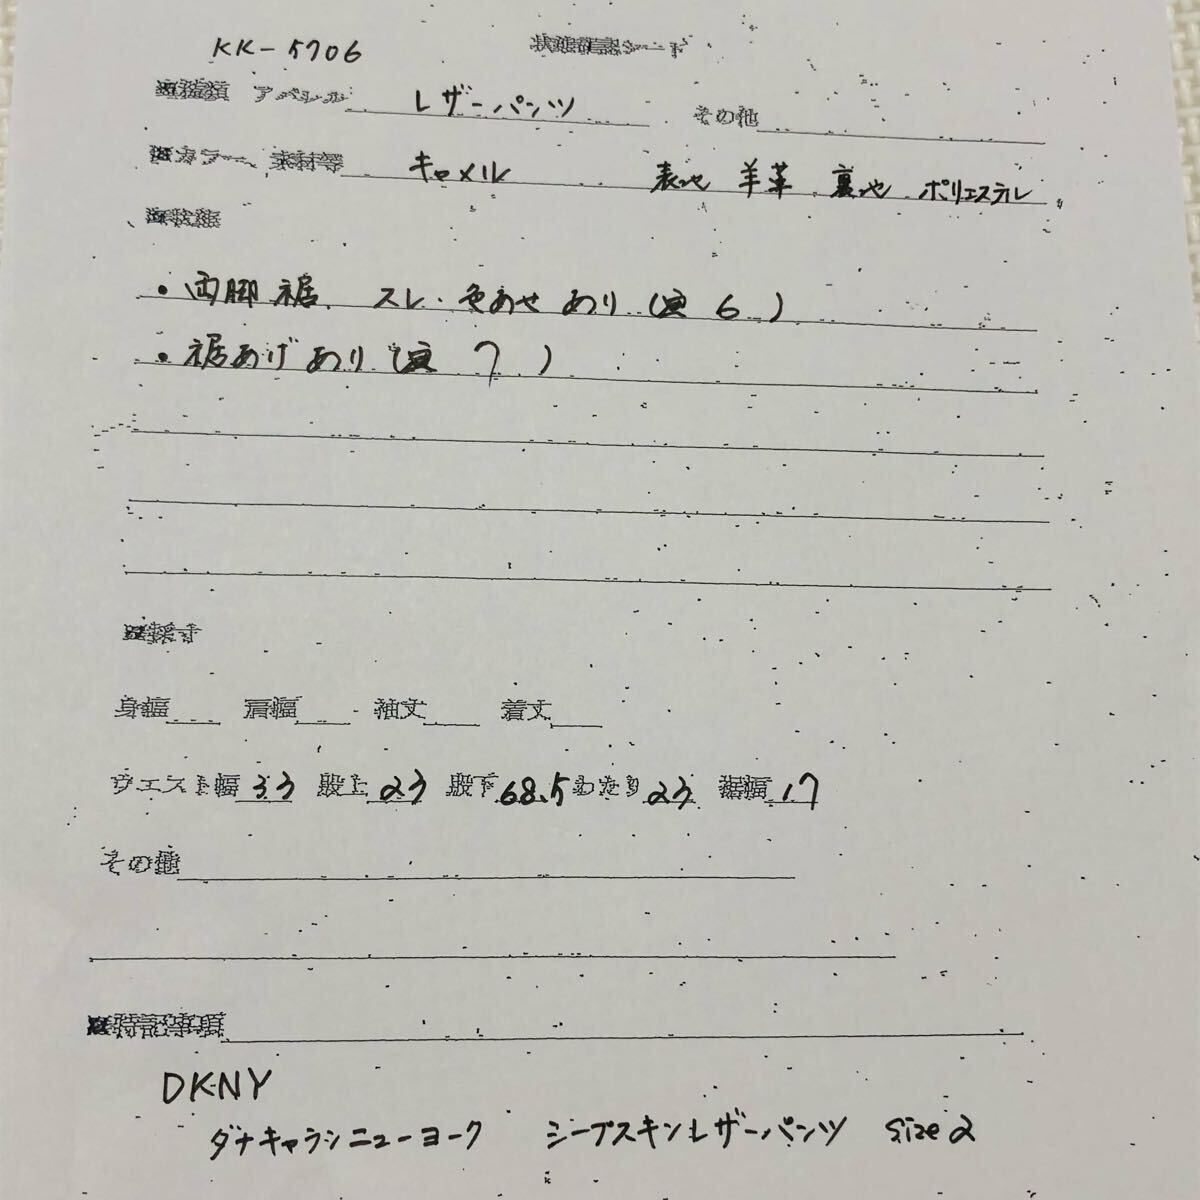 KK-5706 状態確認シート
※種類 アパレル レザーパンツ その他
※カラー、素材等 キャメル 表地 羊革 裏地 ポリエステル
※状態
・両脚裾、スレ・色あせあり(写 6 )
・裾あげあり(写 7 )
※採寸
身幅 肩幅 袖丈 着丈
ウエスト幅 33 股上 23 股下 68.5 わたり 23 裾幅 17
その他
※特記事項
DKNY
ダナキャランニューヨーク シープスキンレザーパンツ size2